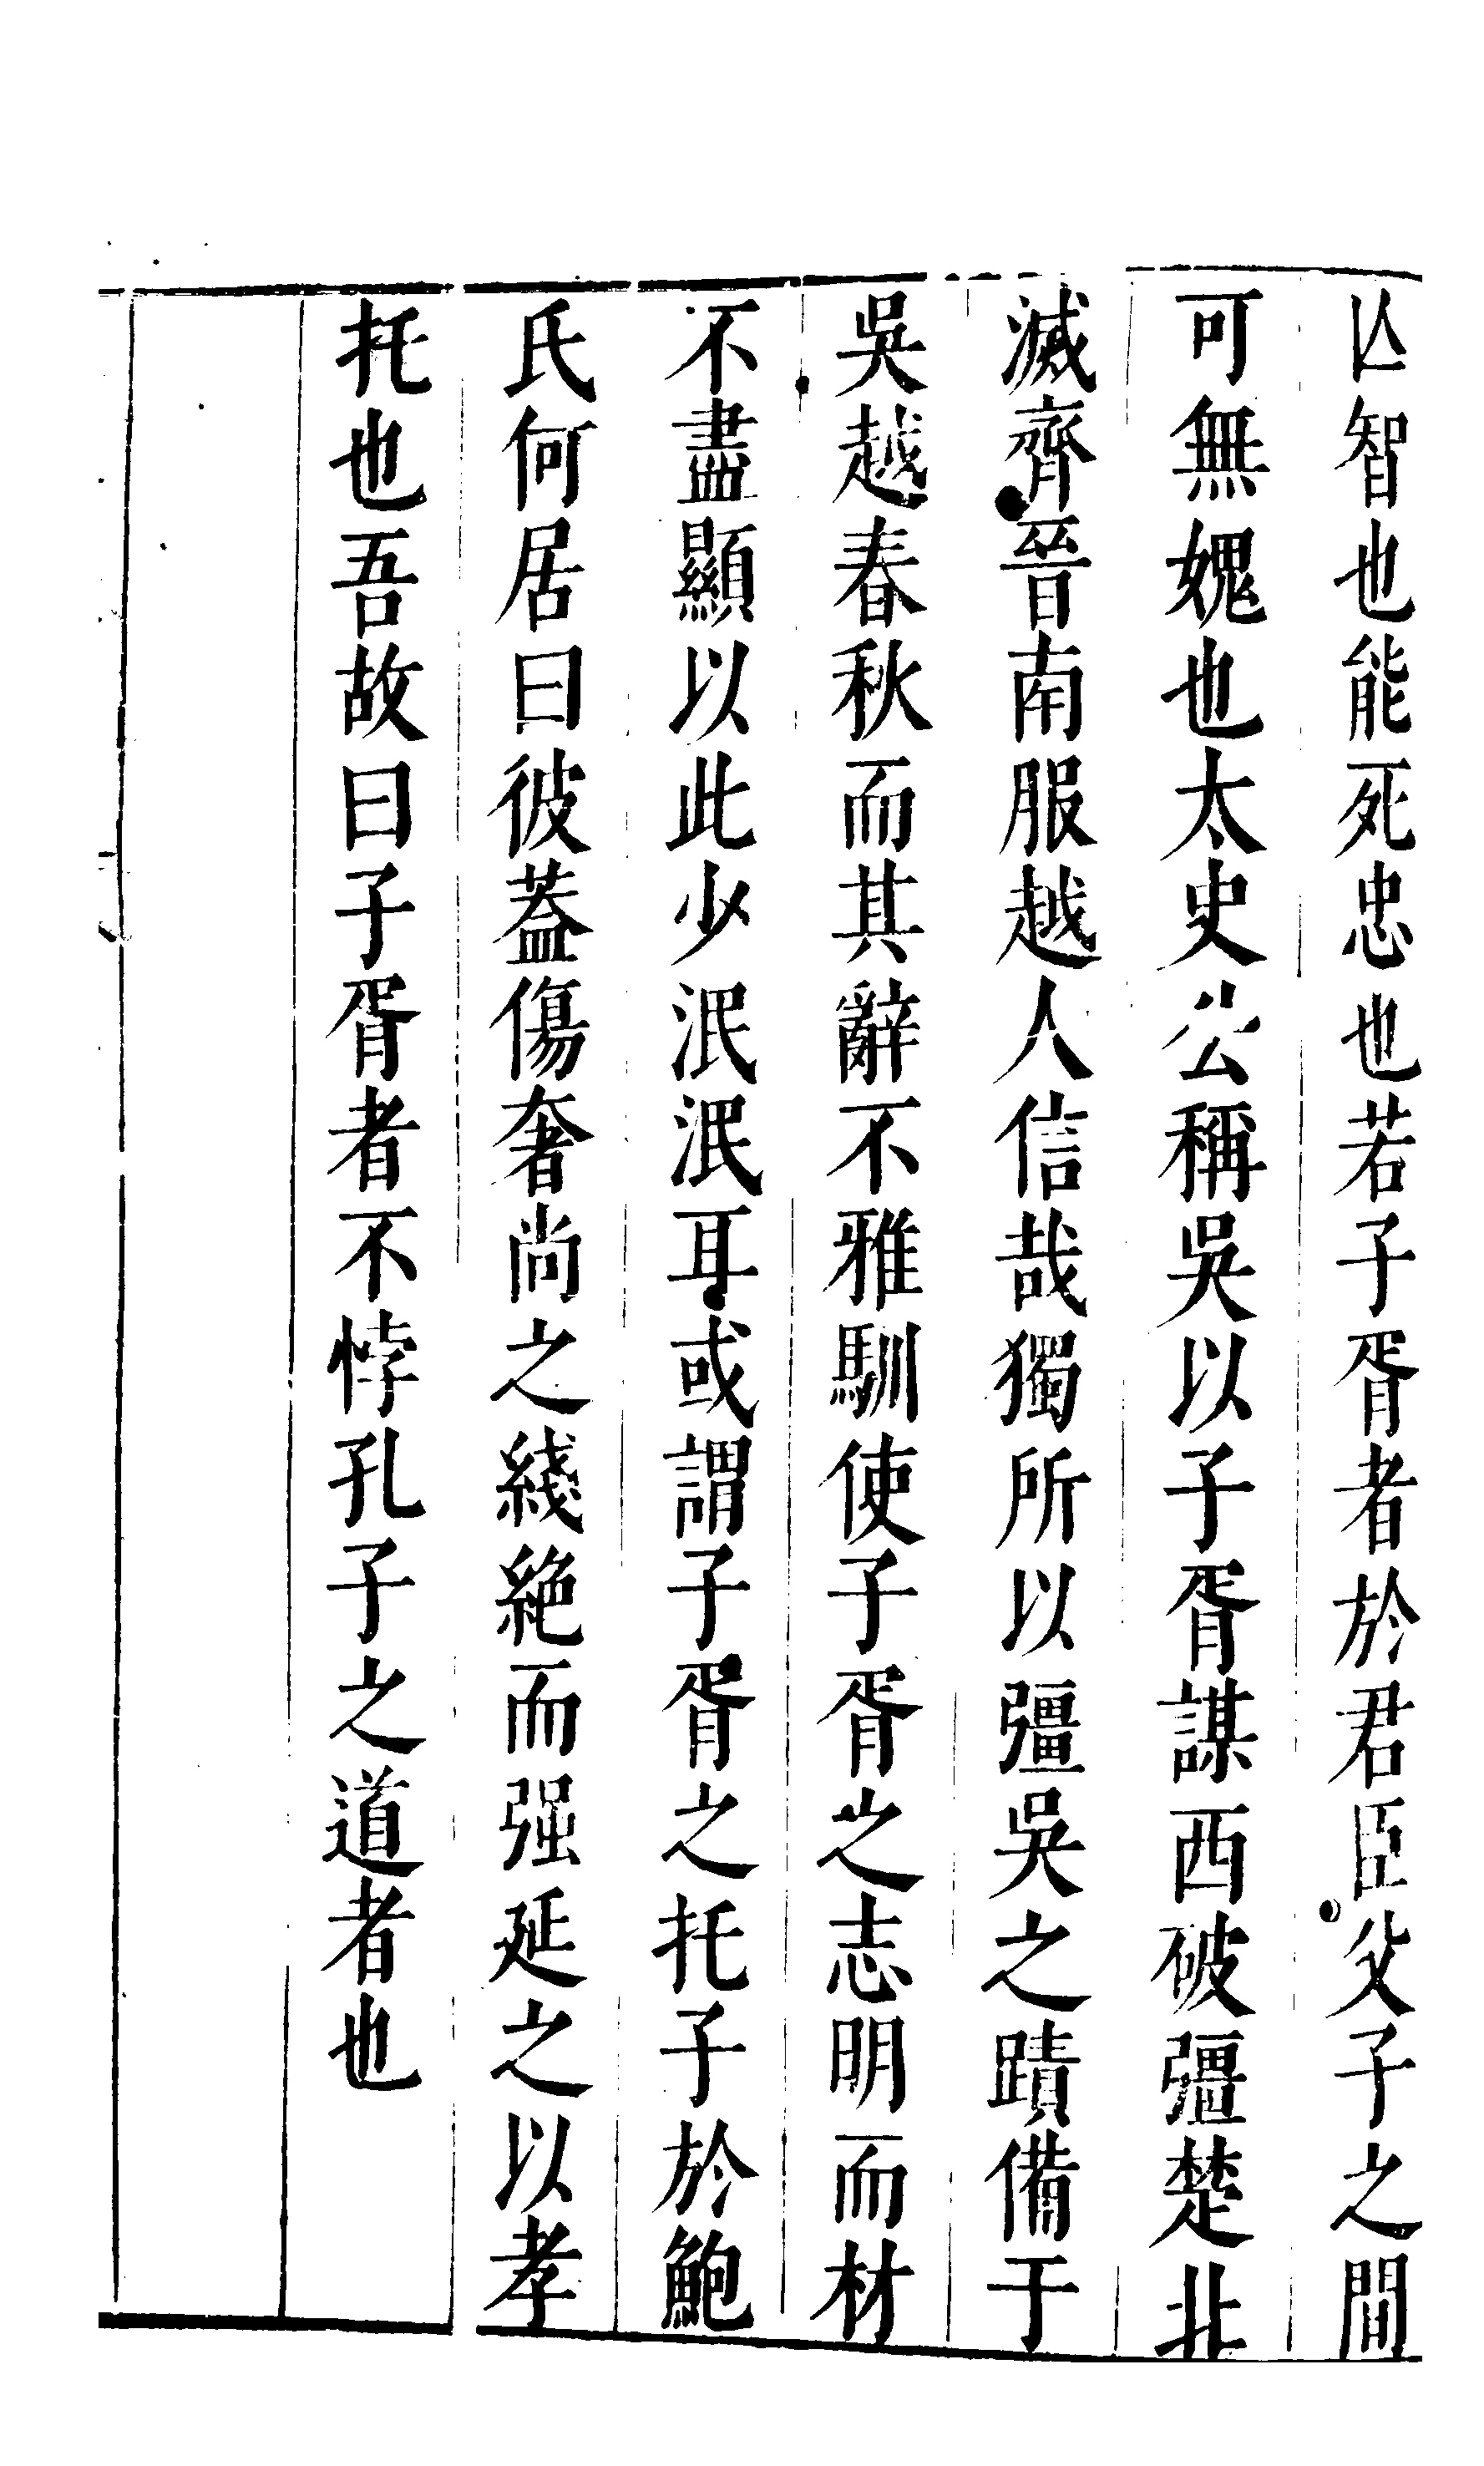 亾智也能死忠也若子胥者於君臣父子之間
可無媿也太史公稱吳以子胥謀西破彊楚北
滅齊晉南服越人信哉獨所以彊吳之蹟備于
吳越春秋而其辭不雅馴使子胥之志明而材
不盡顯以此少泯泯耳或謂子胥之托子於鮑
氏何居曰彼蓋傷奢尚之綫絶而强延之以孝
托也吾故曰子胥者不悖孔子之道者也